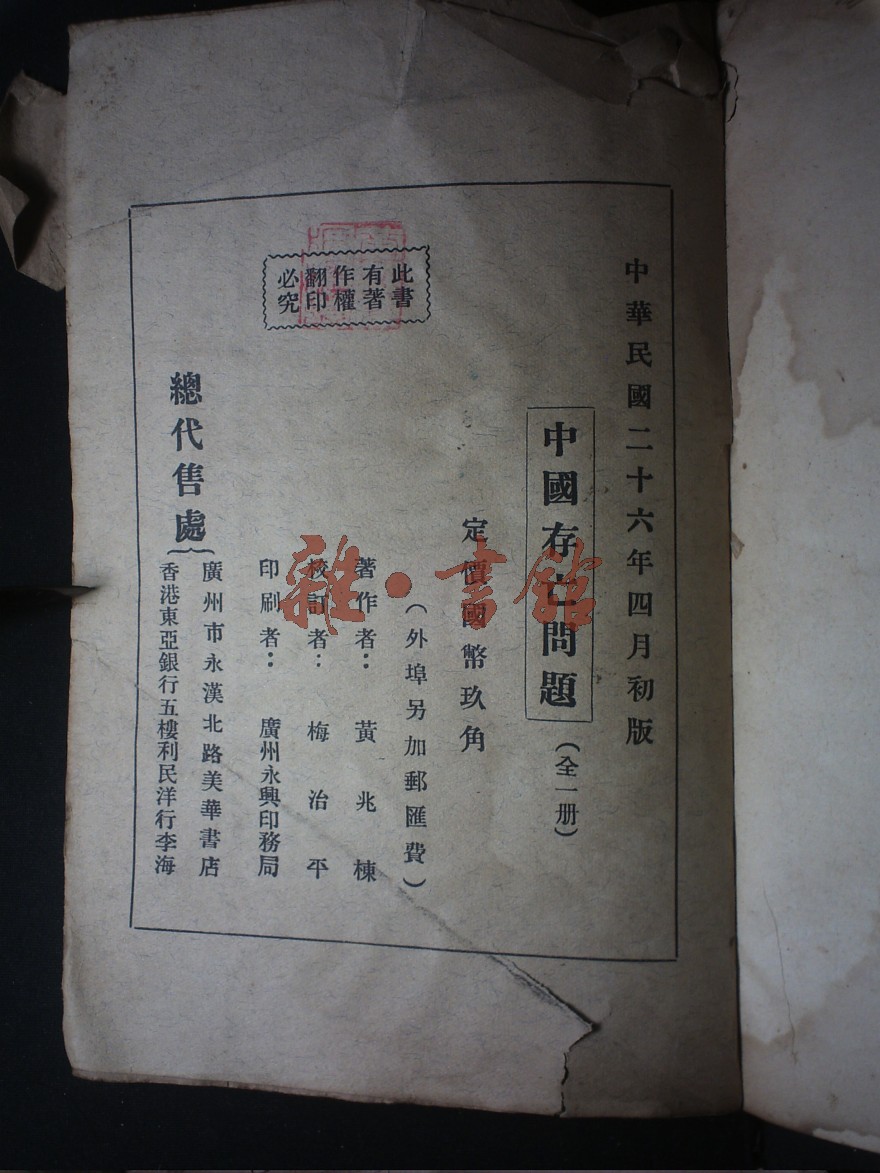 中華民國二十六年四月初版
中國存亡問題（全一册）
定價國幣玖角
（外埠另加郵匯費）
著作者：黃兆棟
校訂者：梅治平
印刷者：廣州永興印務局
總代售處
廣州市永漢北路美華書店
香港東亞銀行五樓利民洋行李海
此書
有著
作權
翻印
必究
雜·書館